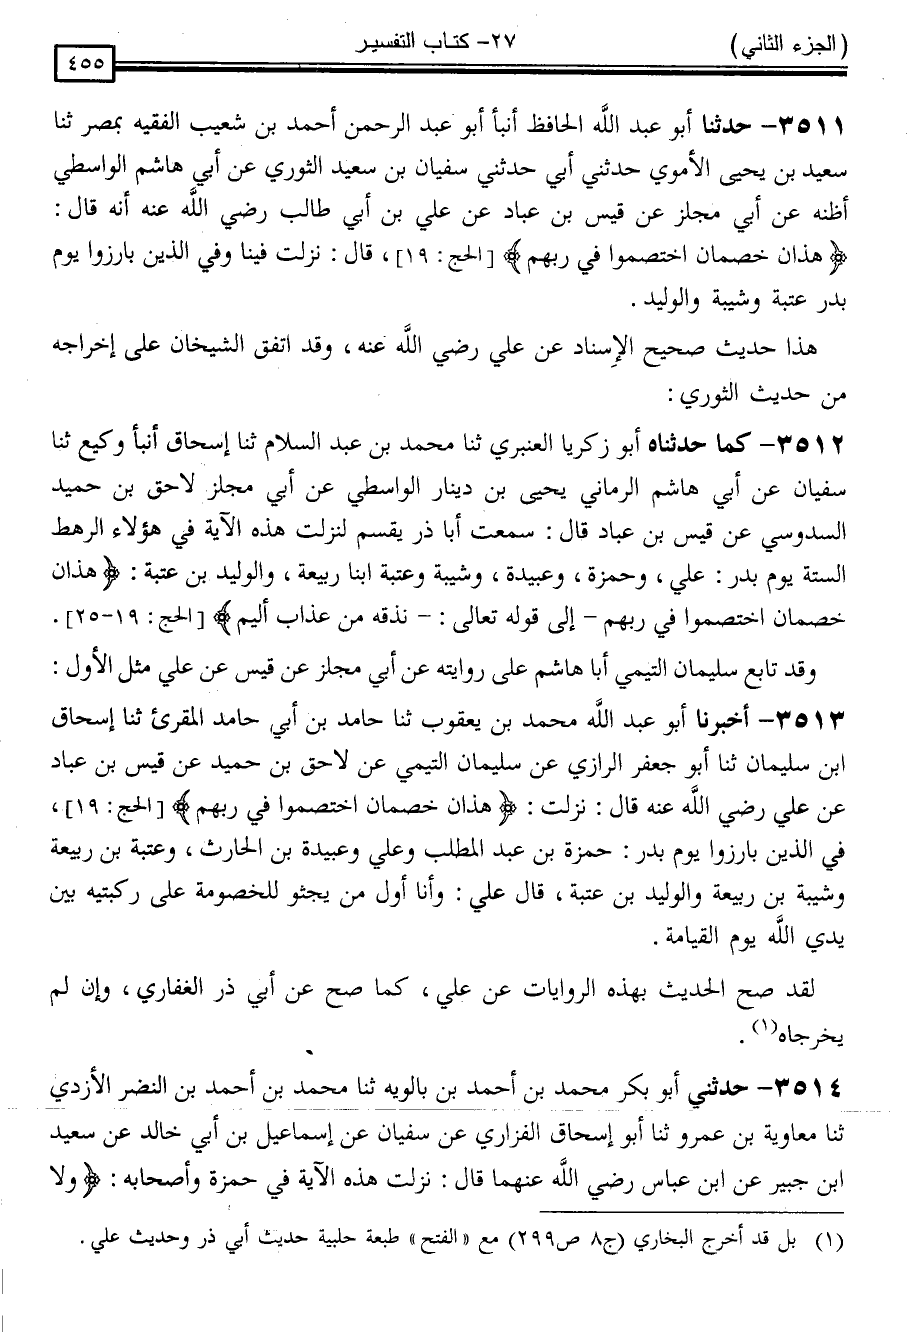 (الجزء الثاني)
٢٧- كتاب التفسير
٤٥٥
٣٥١١- حدثنا أبو عبد الله الحافظ أنبأ أبو عبد الرحمن أحمد بن شعيب الفقيه بمصر ثنا
سعيد بن يحيى الأموي حدثني أبي حدثني سفيان بن سعيد الثوري عن أبي هاشم الواسطي
أظنه عن أبي مجلز عن قيس بن عباد عن علي بن أبي طالب رضي الله عنه أنه قال :
﴿ هذان خصمان اختصموا في ربهم ﴾ [الحج: ١٩] ، قال : نزلت فينا وفي الذين بارزوا يوم
بدر عتبة وشيبة والوليد .
هذا حديث صحيح الإسناد عن علي رضي الله عنه ، وقد اتفق الشيخان على إخراجه
من حديث الثوري :
٣٥١٢- كما حدثناه أبو زكريا العنبري ثنا محمد بن عبد السلام ثنا إسحاق أنبأ وكيع ثنا
سفيان عن أبي هاشم الرماني يحيى بن دينار الواسطي عن أبي مجلز لاحق بن حميد
السدوسي عن قيس بن عباد قال : سمعت أبا ذر يقسم لنزلت هذه الآية في هؤلاء الرهط
الستة يوم بدر : علي ، وحمزة ، وعبيدة ، وشيبة وعتبة ابنا ربيعة ، والوليد بن عتبة : ﴿ هذان
خصمان اختصموا في ربهم - إلى قوله تعالى : - نذقه من عذاب أليم ﴾ [الحج: ١٩-٢٥] .
وقد تابع سليمان التيمي أبا هاشم على روايته عن أبي مجلز عن قيس عن علي مثل الأول :
٣٥١٣- أخبرنا أبو عبد الله محمد بن يعقوب ثنا حامد بن أبي حامد المقرئ ثنا إسحاق
ابن سليمان ثنا أبو جعفر الرازي عن سليمان التيمي عن لاحق بن حميد عن قيس بن عباد
عن علي رضي الله عنه قال : نزلت : ﴿ هذان خصمان اختصموا في ربهم ﴾ [الحج: ١٩] ،
في الذين بارزوا يوم بدر : حمزة بن عبد المطلب وعلي وعبيدة بن الحارث ، وعتبة بن ربيعة
وشيبة بن ربيعة والوليد بن عتبة ، قال علي : وأنا أول من يجثو للخصومة على ركبتيه بين
يدي الله يوم القيامة .
لقد صح الحديث بهذه الروايات عن علي ، كما صح عن أبي ذر الغفاري ، وإن لم
يخرجاه(١) .
٣٥١٤- حدثني أبو بكر محمد بن أحمد بن بالويه ثنا محمد بن أحمد بن النضر الأزدي
ثنا معاوية بن عمرو ثنا أبو إسحاق الفزاري عن سفيان عن إسماعيل بن أبي خالد عن سعيد
ابن جبير عن ابن عباس رضي الله عنهما قال : نزلت هذه الآية في حمزة وأصحابه : ﴿ ولا
(١) بل قد أخرج البخاري (ج٨ ص٢٩٩) مع «الفتح» طبعة حلبية حديث أبي ذر وحديث علي .